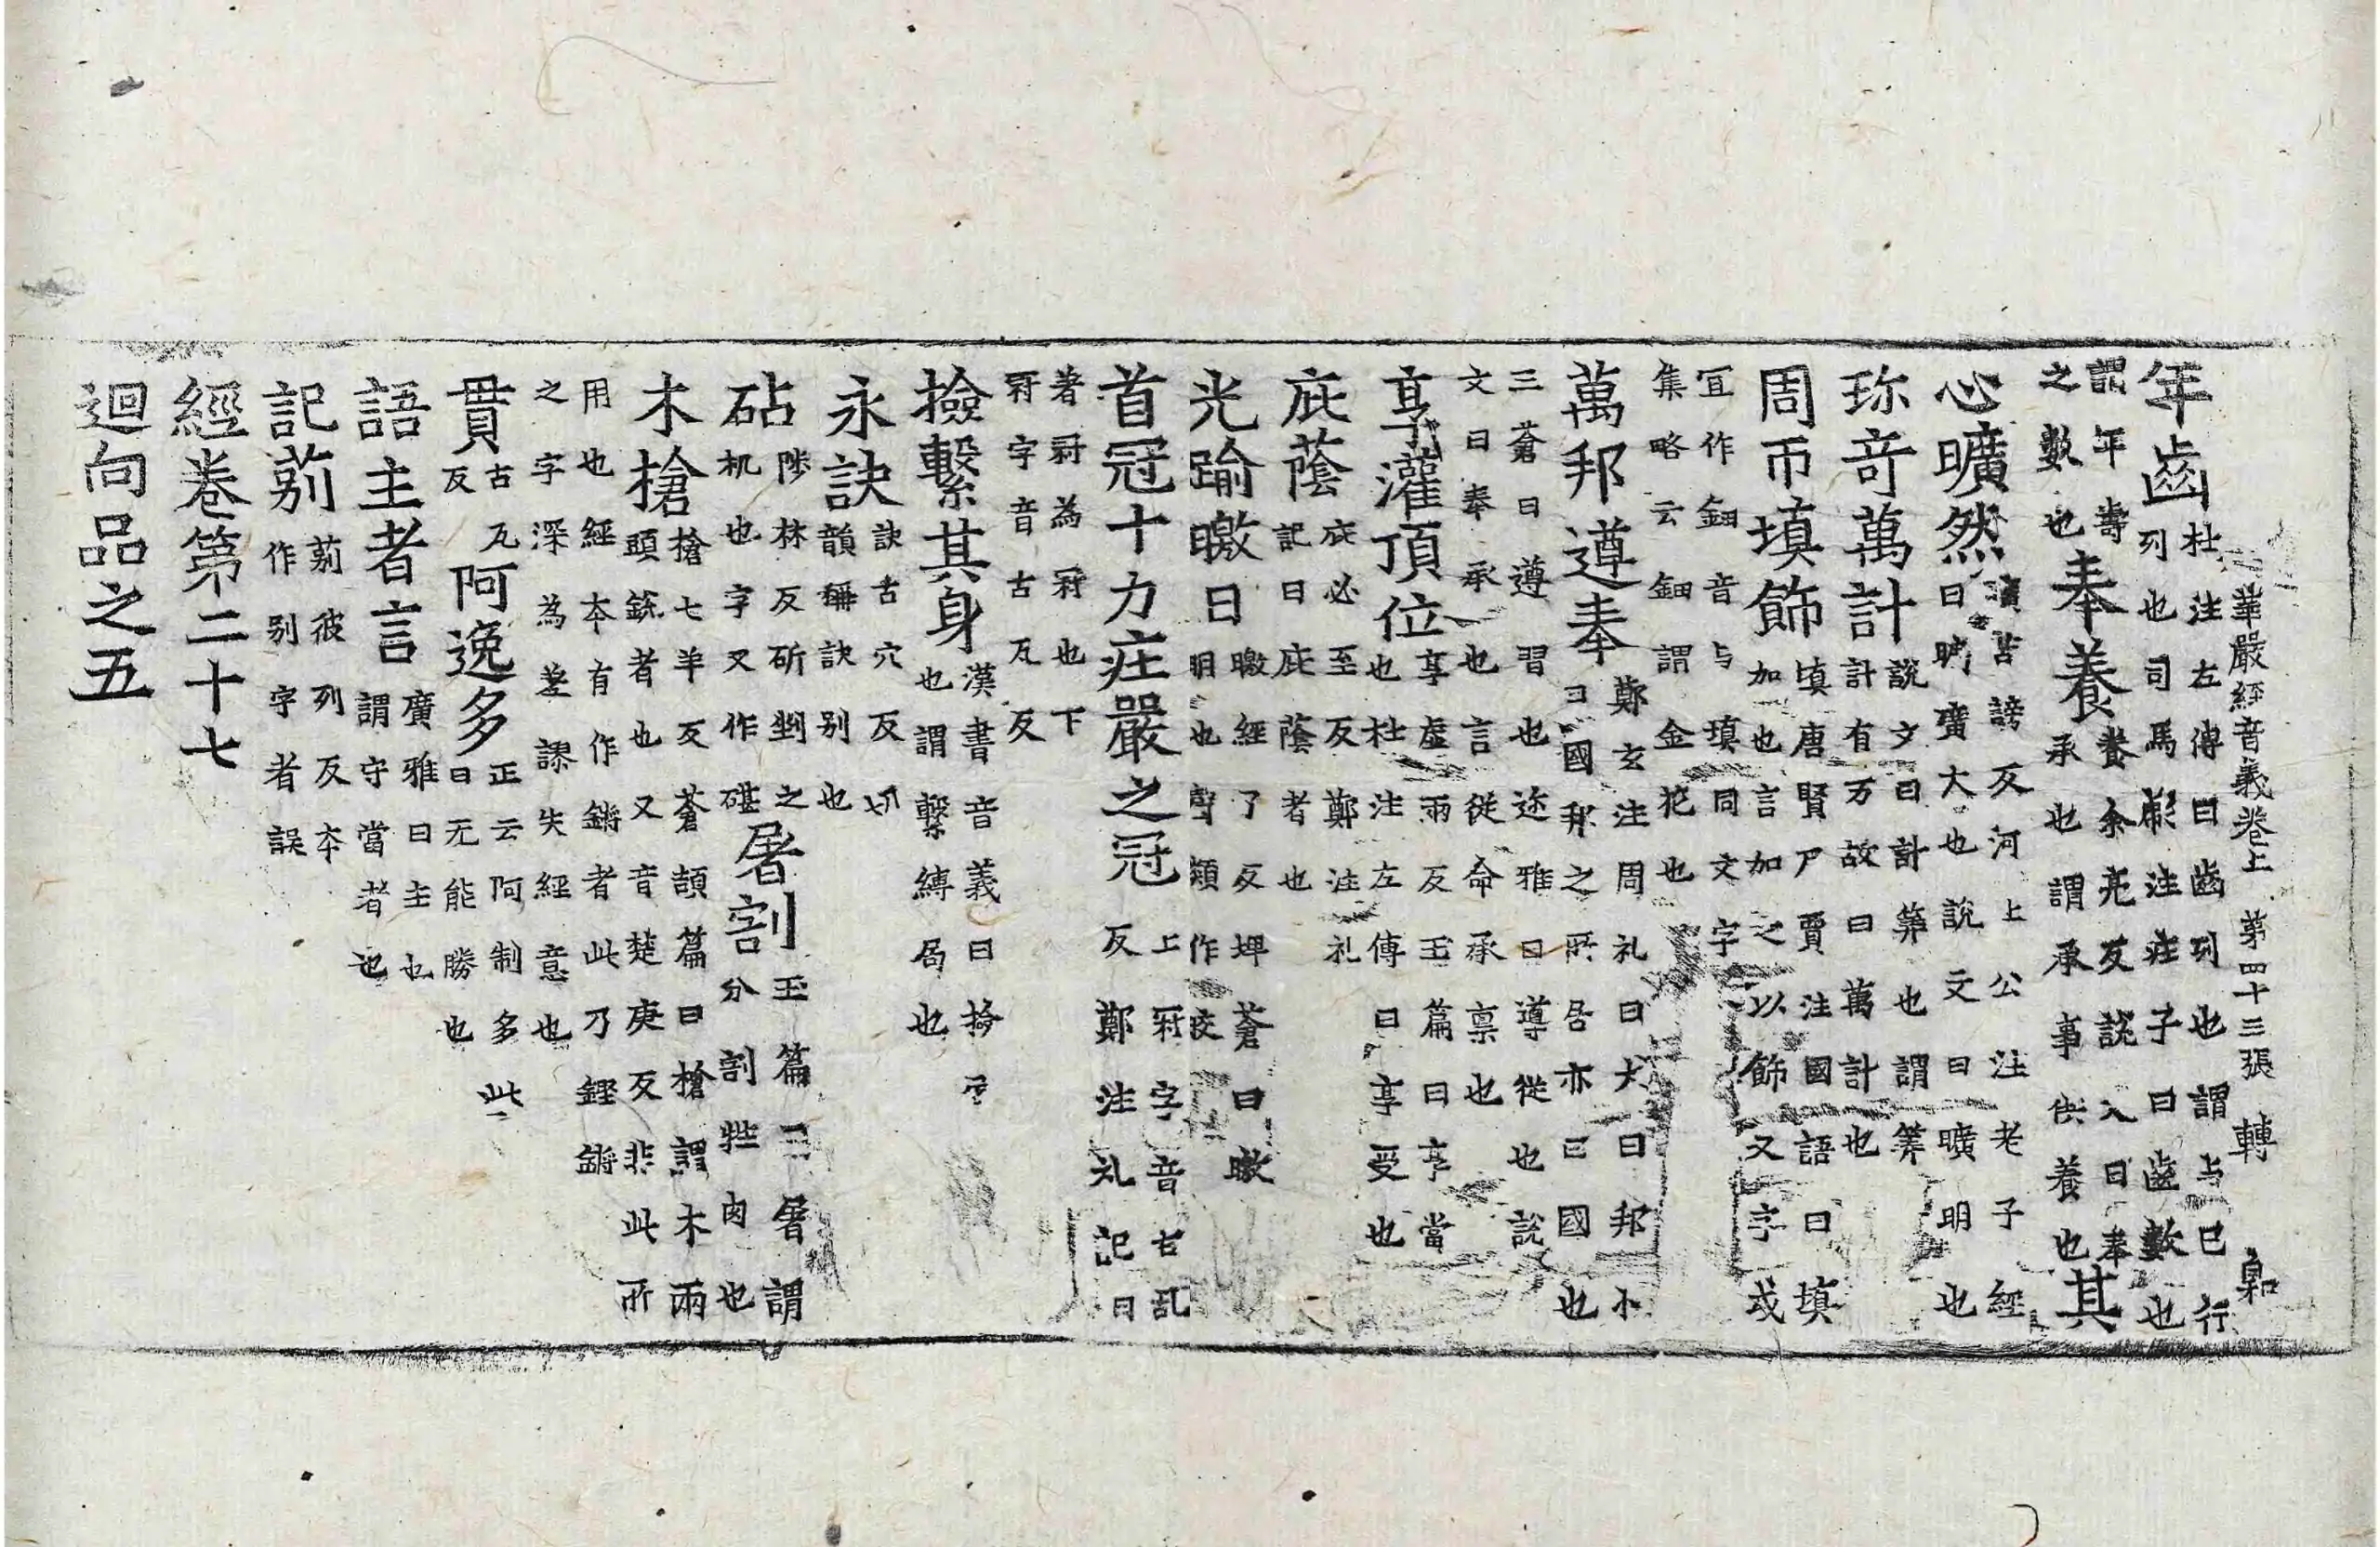 華嚴經音義卷上 第四十三張 轉
年齒杜注左傳曰齒列也謂与巳行列也司馬彪注莊子曰齒數也
謂年壽之數也奉養養余亮反説入曰奉承也謂承事供養也其
心曠然曠苦謗反河上公注老子經曰曠廣大也說文曰曠明也
珎竒萬計説文曰計筭也謂筭計有万故曰萬計也
周帀填飾填唐賢反賈注國語曰填加也言加之以飾又字或
宜作鈿音与填同文字集略云鈿謂金花也
萬邦遵奉鄭玄注周礼曰大曰邦小曰國邦之所居亦曰國也
三蒼曰遵習也迩雅曰遵從也説文曰奉承也言從命承禀也
享灌頂位享虛兩反玉篇曰享當也杜注左傳曰享受也
庇蔭庇必至反鄭注礼記曰庇蔭者也
光踰曒日曒經了反埤蒼曰曒明也聲類作皎
首冠十力莊嚴之冠上冠字音古乱反鄭注礼記曰
著冠為冠也下冠字音古瓦反
撿繫其身漢書音義曰撿局也謂繫縛局也
永訣訣古穴反切韻稱訣別也
砧陟林反斫剉之机也字又作碪屠割玉篇曰屠謂分割牲肉也
木槍槍七羊反蒼頡篇曰槍謂木兩頭銳者也又音楚庚反非此所
用也經本有作鏘者此乃鏗鏘之字深為差謬失經意也
貫古瓦反阿逸多正云阿制多此曰无能勝也
語主者言廣雅曰主也謂守當者也
記莂莂彼列反本作別字者誤
經卷第二十七
迴向品之五